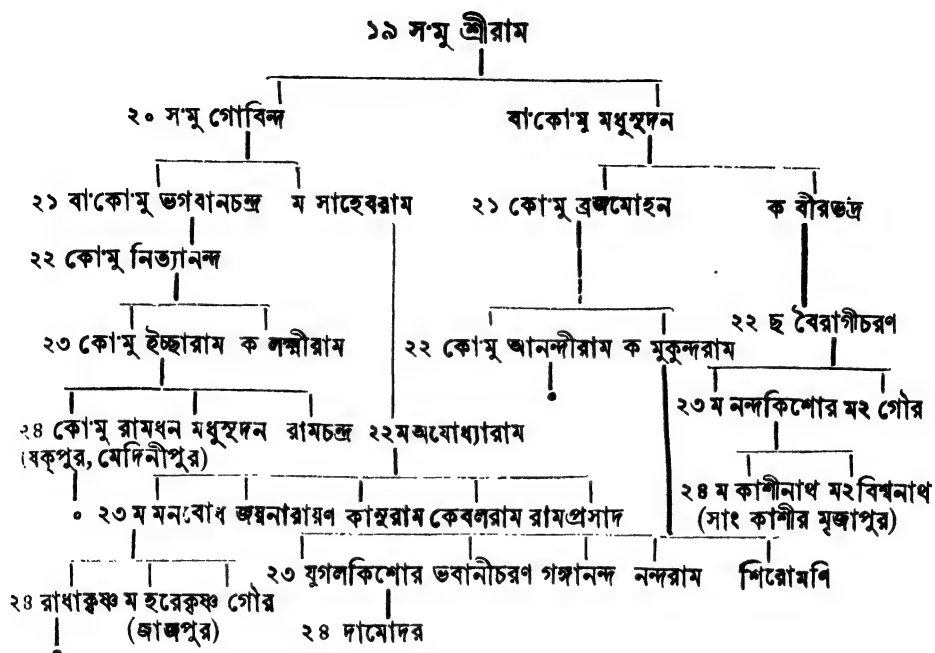 ১৯ স'মু শ্রীরাম
২০ স'মু গোবিন্দ বা'কো'মু মধুসূদন
২১ বা'কো'মু ভগবানচন্দ্র ম সাহেবরাম ২১ কো'মু ব্রজমোহন ক বীরভদ্র
২২ কো'মু নিত্যানন্দ
২২ ছ বৈরাগীচরণ
২৩ কো'মু ইচ্ছারাম ক লক্ষ্মীরাম ২২ কো'মু আনন্দীরাম ক মুকুন্দরাম
২৩ ম নন্দকিশোর ম২ গৌর
২৪ কো'মু রামধন মধুসূদন রামচন্দ্র ২২ম অযোধ্যারাম
(যক্‌পুর, মেদিনীপুর)
২৪ ম কাশীনাথ ম২ বিশ্বনাথ
(সাং কাশীর মৃজাপুর)
০ ২৩ ম মনবোধ জয়নারায়ণ কাসুরাম কেবলরাম রামপ্রসাদ
২৩ যুগলকিশোর ভবানীচরণ গঙ্গানন্দ নন্দরাম শিরোমণি
২৪ রাধাকৃষ্ণ ম হরেকৃষ্ণ গৌর
(জাজপুর)
২৪ দামোদর